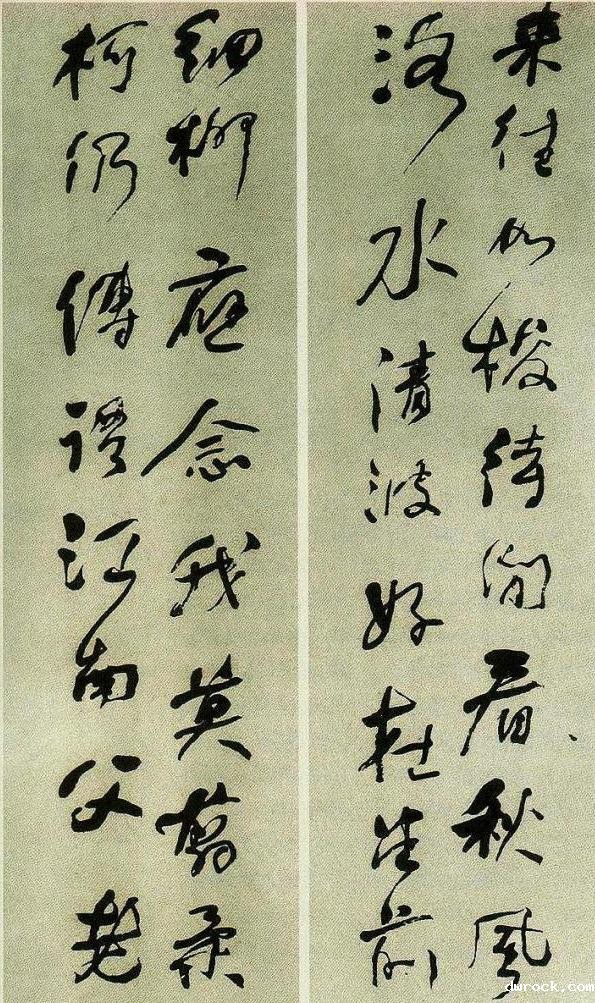 來往如梭待閒看秋風
洛水清波好在堂前
細柳應念我莫翦柔
柯仍傳語江南父老
dwrock.com